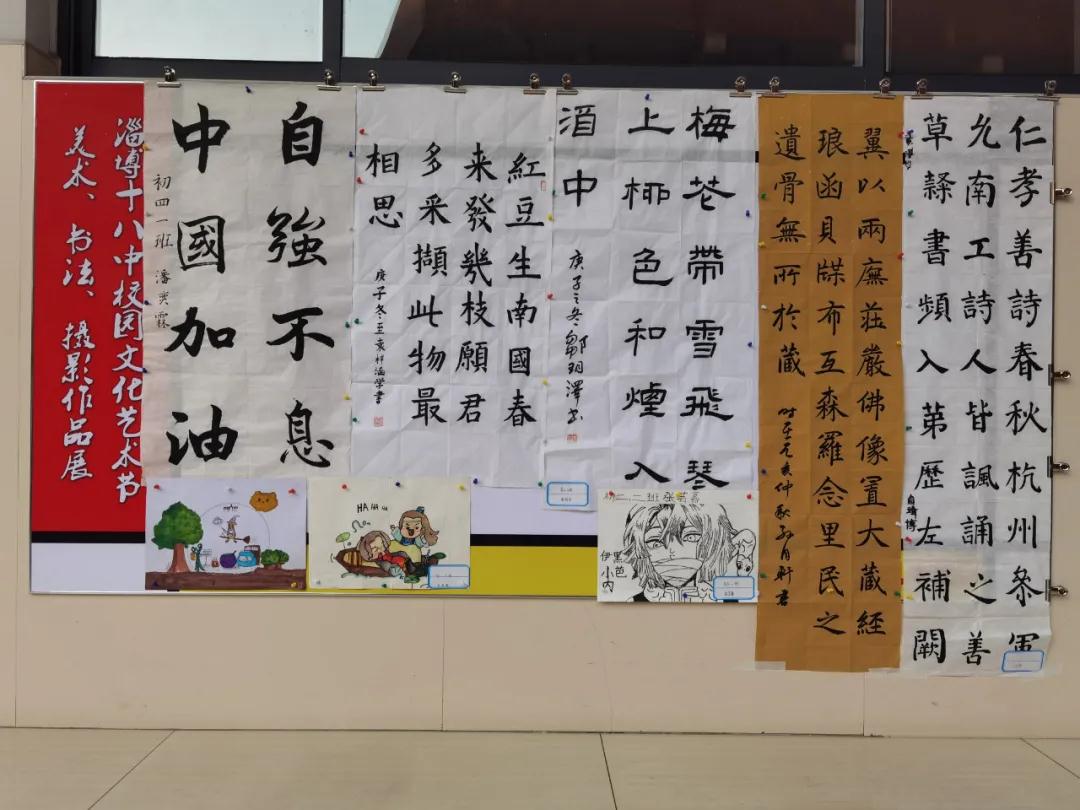 淄博十八中校园文化艺术节
美术、书法、摄影作品展
自強不息
中國加油
初四一班
紅豆生南國春
来發幾枝願君
多采擷此物最
相思
庚子冬至袁梓涵学書
梅花帶雪飛琴
上柳色和煙入
酒中
庚子之冬鄒羽澤书
翼以兩廡莊嚴佛像置大藏經
琅函貝牒布互森羅念里民之
遺骨無所於藏
仁孝善詩春秋杭州叅軍
允南工詩人皆諷誦之善
草隸書頻入第歷左補闕
HA HA HA
二班
伊黑
小芭
内